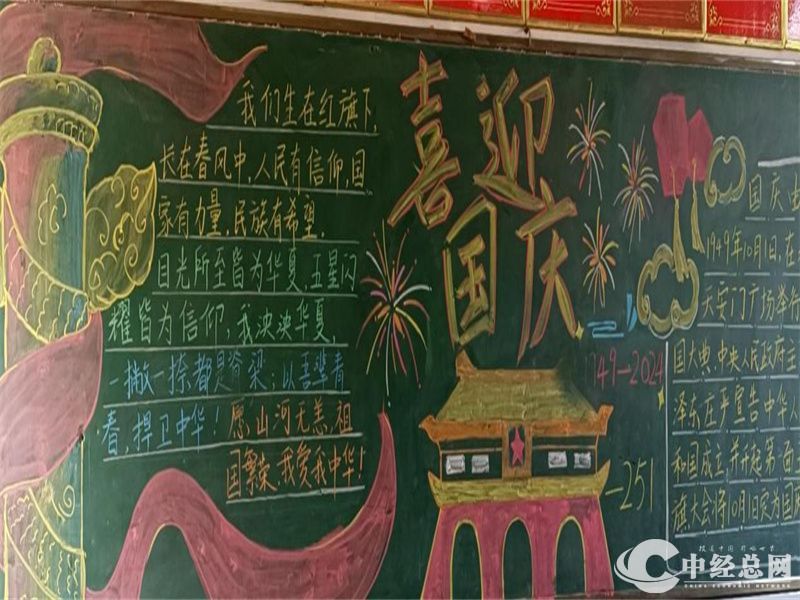 我们生在红旗下,
长在春风中,人民有信仰,国
家有力量,民族有希望.
目光所至皆为华夏,五星闪
耀皆为信仰,我泱泱华夏,
一撇一捺都是脊梁;以吾辈青
春,捍卫中华!愿山河无恙,祖
国繁荣,我爱我中华!
喜迎
国庆
1949-2024
-251
国庆由
1949年10月1日,在
天安门广场举行
国大典,中央人民政府主
泽东庄严宣告中华人
和国成立并升起第一面
旗,大会将10月1日定为国庆
中经总网
CHINA ECONOMIC NETWORK